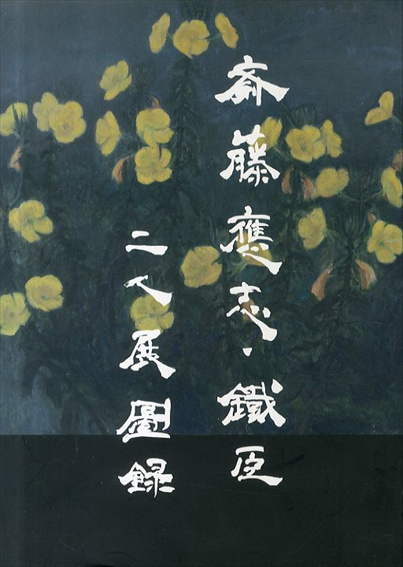 斎藤應志・鐵臣
二人展圖録